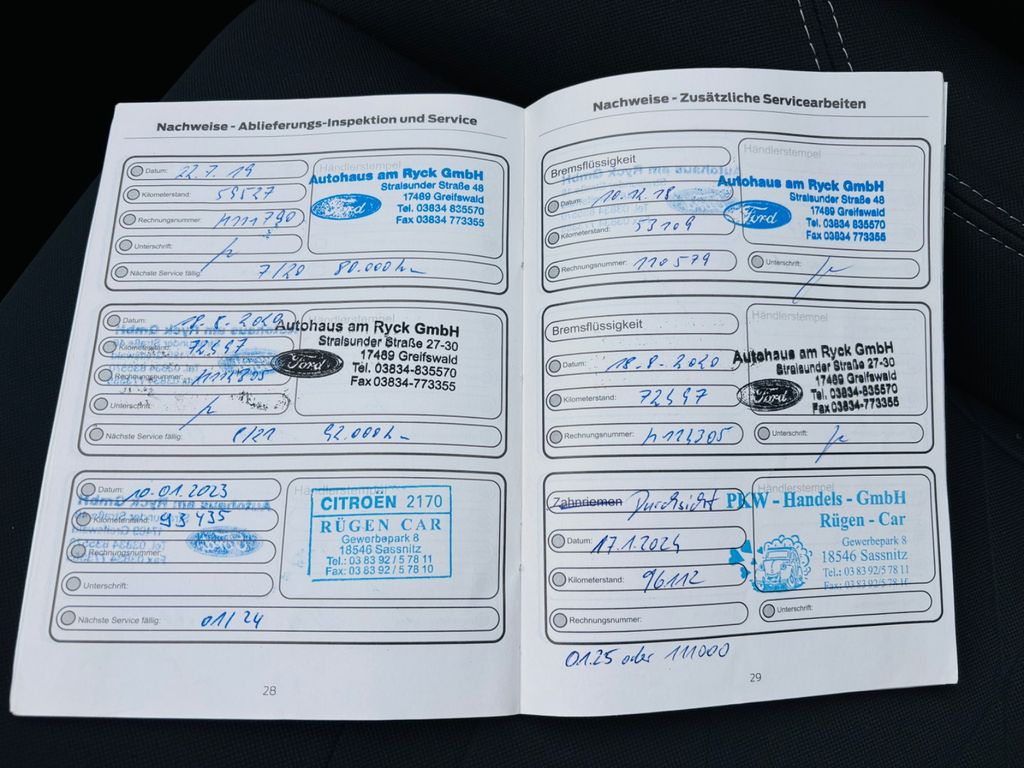 Nachweise - Ablieferungs-Inspektion und Service
Datum: 22.7.19
Kilometerstand: 59527
Rechnungsnummer:
Unterschrift:
Nächste Service fällig: 7/20 80.000
Händlerstempel
Autohaus am Ryck GmbH
Stralsunder Straße 48
17489 Greifswald
Tel. 03834 835570
Fax 03834 773355
Ford
Datum: 18.8.2020
Kilometerstand: 72497
Rechnungsnummer:
Unterschrift:
Nächste Service fällig: 8/21 92.000
Händlerstempel
Autohaus am Ryck GmbH
Stralsunder Straße 27-30
17489 Greifswald
Tel. 03834-835570
Fax 03834-773355
Ford
Datum: 10.01.2023
Kilometerstand: 93435
Rechnungsnummer:
Unterschrift:
Nächste Service fällig: 01/24
Händlerstempel
CITROEN 2170
RÜGEN CAR
Gewerbepark 8
18546 Sassnitz
Tel.: 03 83 92 / 5 78 11
Fax: 03 83 92 / 5 78 10
28
Nachweise - Zusätzliche Servicearbeiten
Bremsflüssigkeit
Datum: 10.12.18
Kilometerstand: 53109
Rechnungsnummer: 110579
Unterschrift:
Händlerstempel
Autohaus am Ryck GmbH
Stralsunder Straße 48
17489 Greifswald
Tel. 03834 835570
Fax 03834 773355
Ford
Bremsflüssigkeit
Datum: 18.8.2020
Kilometerstand: 72497
Rechnungsnummer:
Unterschrift:
Händlerstempel
Autohaus am Ryck GmbH
Stralsunder Straße 27-30
17489 Greifswald
Tel. 03834-835570
Fax 03834-773355
Ford
Zahnriemen Durchsicht
Datum: 17.1.2024
Kilometerstand: 96112
Rechnungsnummer:
Unterschrift:
Händlerstempel
PKW - Handels - GmbH
Rügen - Car
Gewerbepark 8
18546 Sassnitz
Tel.: 03 83 92/5 78 11
Fax: 03 83 92/5 78 10
01.25 oder 111000
29